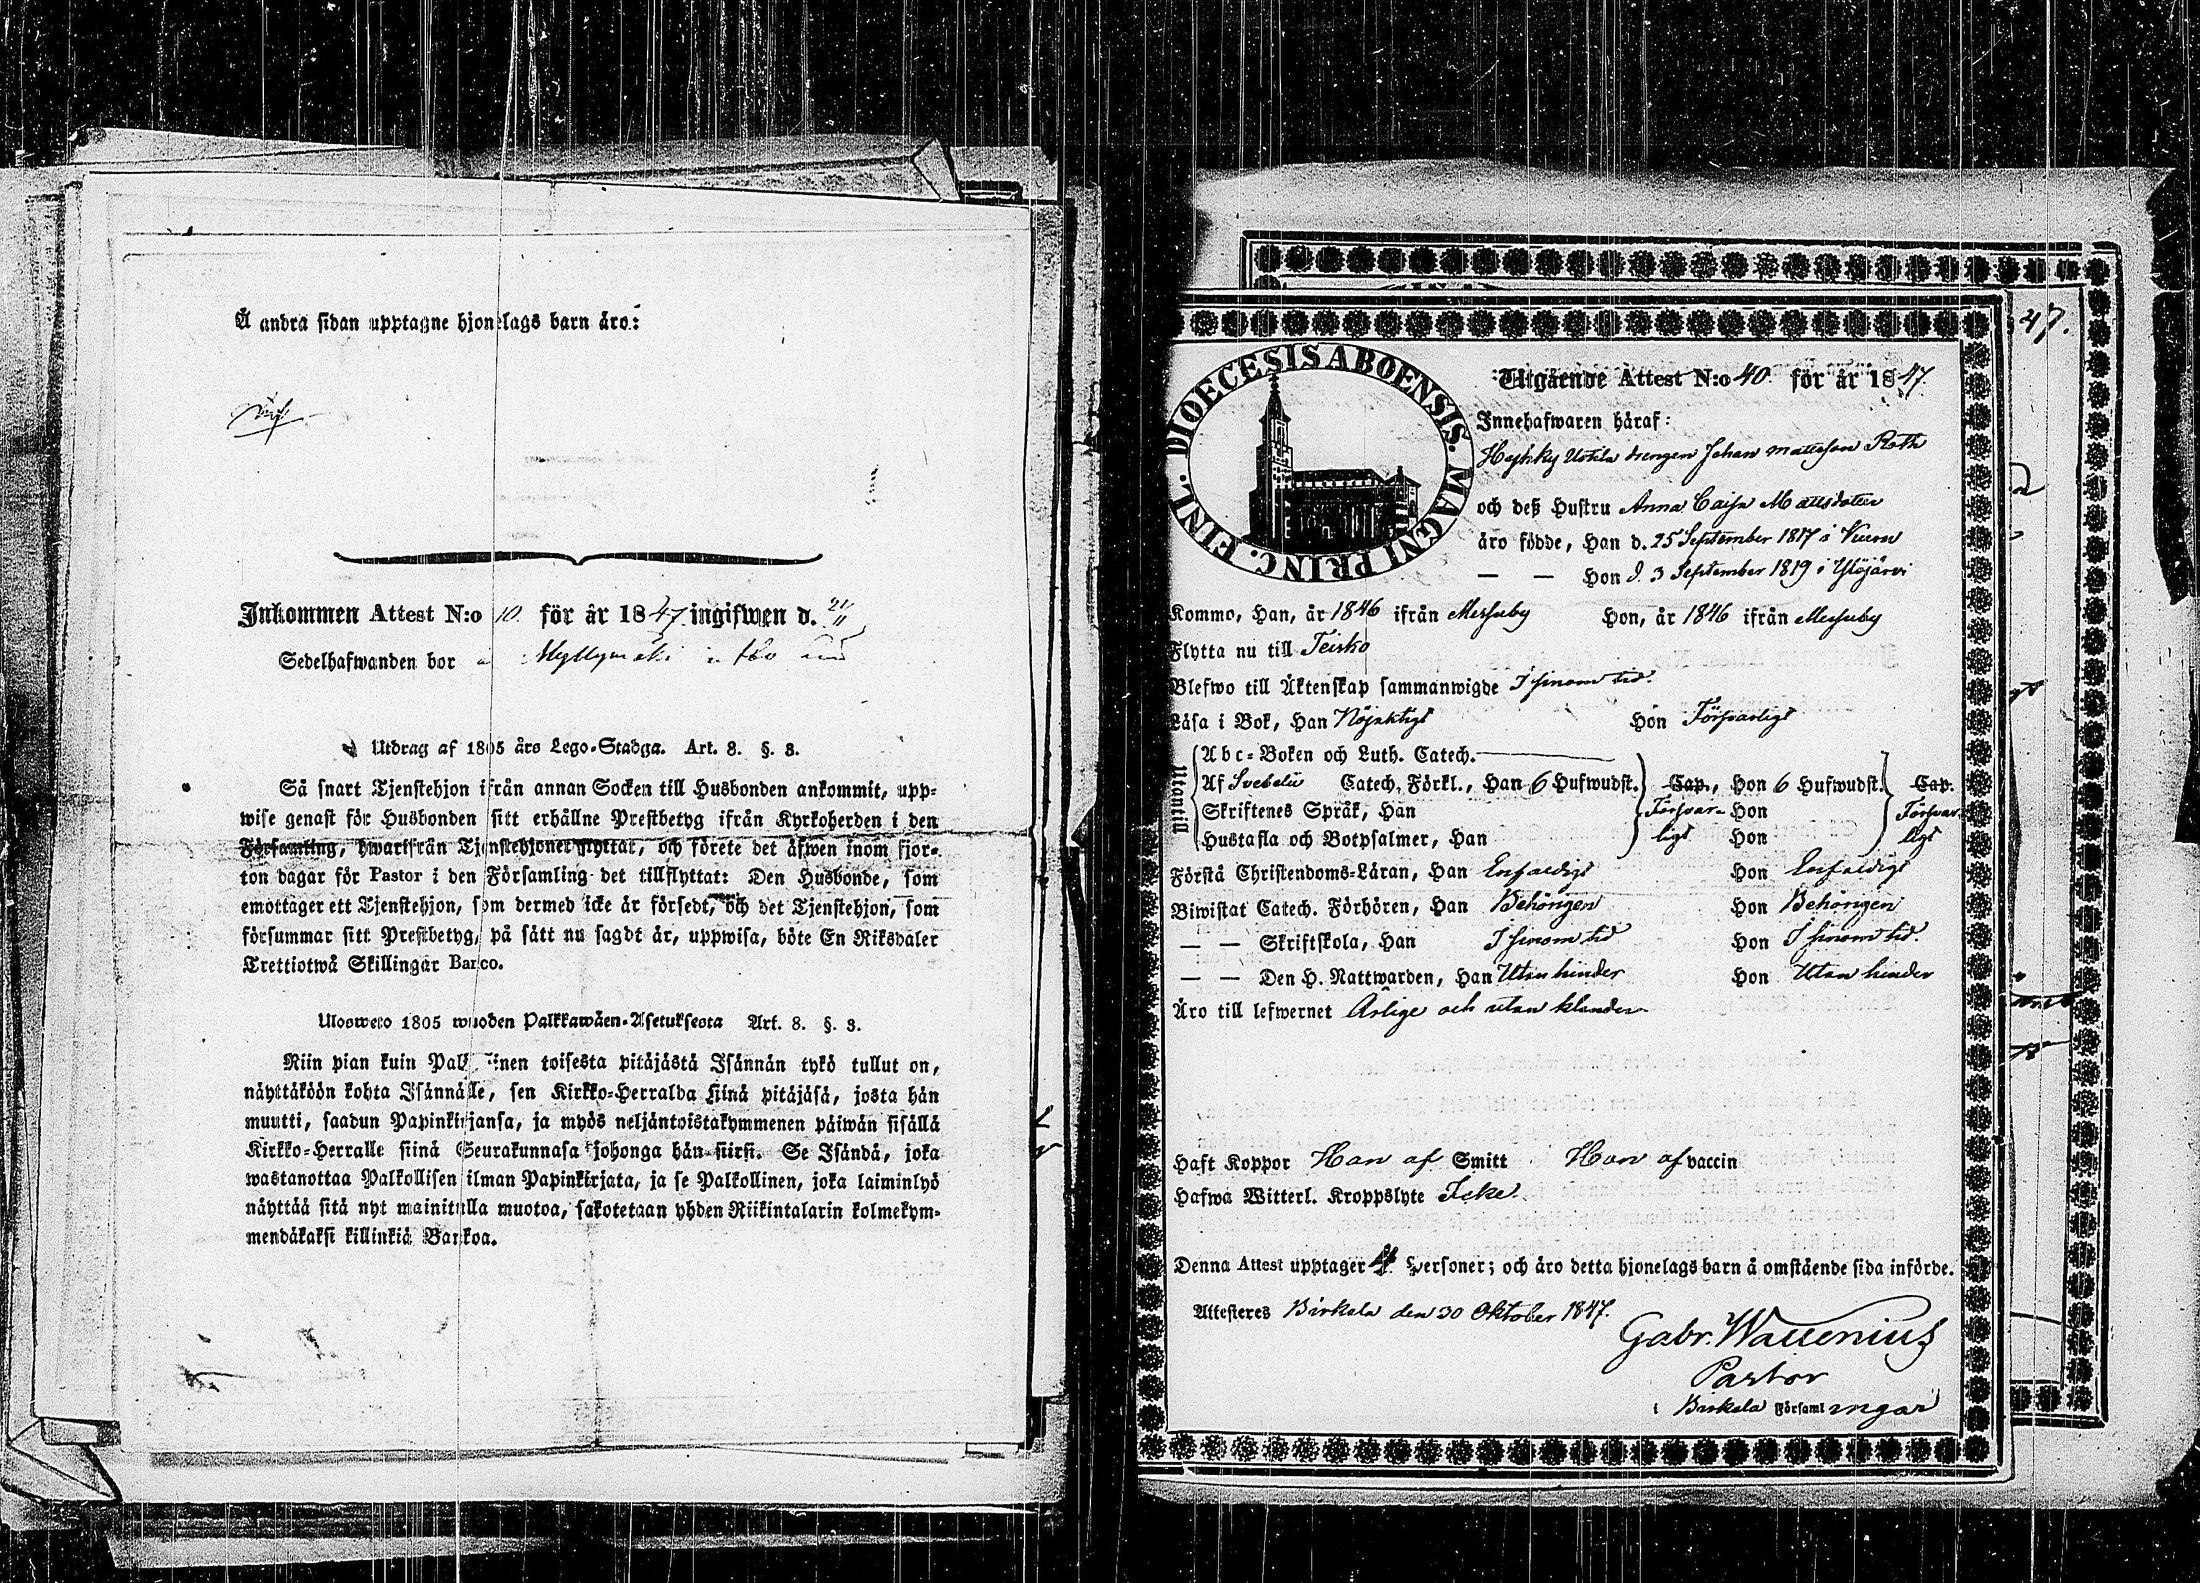 Å andra sidan upptagne hjonelags barn äro:
Inkommen Attest N:o 10. för år 1847 ingifwen d. 21/11
Sedelhafwanden bor
Utdrag af 1805 års Lego-Stadga. Art. 8. §. 3.
Så snart Tjenstehjon ifrån annan Socken till Husbonden ankommit, upp-
wise genast för Husbonden sitt erhållne Prestbetyg ifrån Kyrkoherden i den
Församling, hwarifrån Tjenstehjonet flyttat, och förete det äfwen inom fjor-
ton dagar för Pastor i den Församling det tillflyttat: Den Husbonde, som
emottager ett Tjenstehjon, som dermed icke är försedt, och det Tjenstehjon, som
försummar sitt Prestbetyg, på sätt nu sagdt är, uppwisa, böte En Riksdaler
Trettiotwå Skillingar Banco.
Ulosweto 1805 wuoden Palkkawäen-Asetuksesta Art. 8. §. 3.
Niin pian kuin Palkollinen toisesta pitäjästä Isännän tykö tullut on,
näyttäköön kohta Isännälle, sen Kirkko-Herralda siinä pitäjäsä, josta hän
muutti, saadun Papinkirjansa, ja myös neljäntoistakymmenen päiwän sisällä
Kirkko-Herralle siinä Seurakunnasa johonga hän siirsi. Se Isändä, joka
wastanottaa Palkollisen ilman Papinkirjata, ja se Palkollinen, joka laiminlyö
näyttää sitä nyt mainitulla muotoa, sakotetaan yhden Riikintalarin kolmekym-
mendäkaksi killinkiä Bankoa.
47.
DIOECESIS ABOENSIS. MAGNI PRINC. FINL.
Utgående Attest N:o 40. för år 1847.
Innehafwaren häraf:
Hyhky Uotila drengen Johan Mattsson Roth
och deß Hustru Anna Caisa Mattsdotter
äro födde, Han d. 25 September 1817 i
— — Hon d. 3 September 1819 i Ylöjärvi
Kommo, Han, år 1846 ifrån Messuby Hon, år 1846 ifrån Messuby
Flytta nu till Teisko
Blefwo till Äktenskap sammanwigde I sinom tid.
Läsa i Bok, Han Nöjaktigt Hon Försvarligt
Utantill
Abc-Boken och Luth. Catech.
Af Svebelii Catech. Förkl., Han 6 Hufwudst. Cap., Hon 6 Hufwudst. Cap.
Skriftenes Språk, Han Försvar- Hon Försvar-
Hustafla och Botpsalmer, Han ligt Hon ligt
Förstå Christendoms-Läran, Han Enfaldigt Hon Enfaldigt
Biwistat Catech. Förhören, Han Behörigen Hon Behörigen
— — Skriftskola, Han I sinom tid Hon I sinom tid.
— — Den H. Nattwarden, Han Utan hinder Hon Utan hinder
Äro till lefwernet Ärlige och utan klander
Haft Koppor Han af Smitt Hon af vaccin
Hafwa Witterl. Kroppslyte Icke.
Denna Attest upptager personer; och äro detta hjonelags barn å omstående sida införde.
Attesteres Birkala den 30 Oktober 1847.
Gabr. Wallenius
Pastor
i Birkala Församlingar